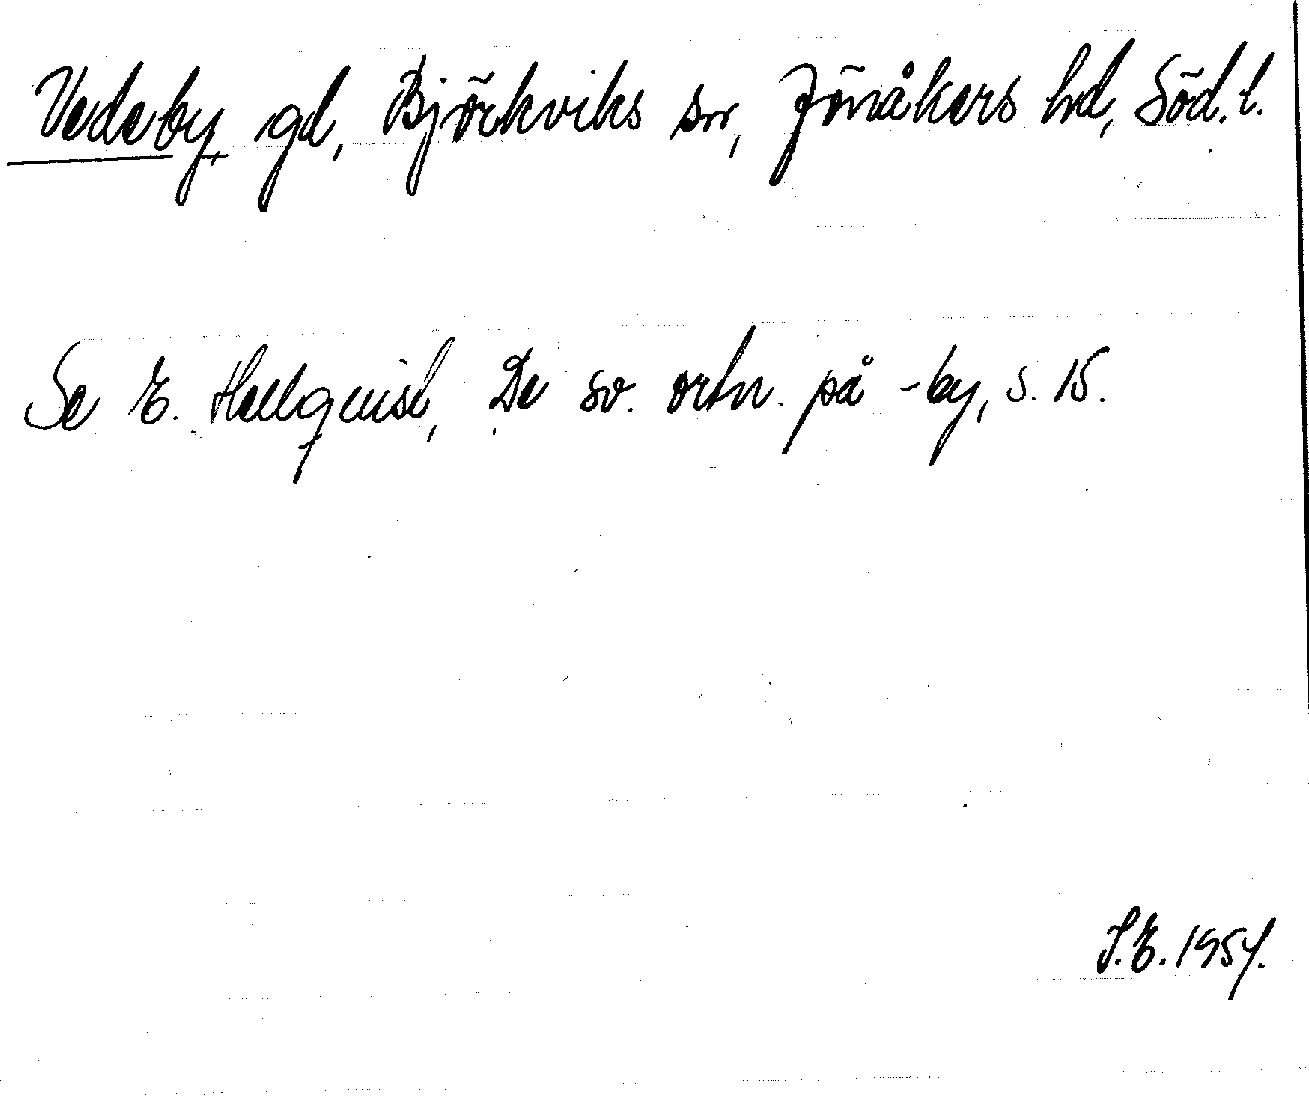 Vedeby gd, Björkviks sn, Jönåkers hd, Söd. l.
Se E. Hellquist, De sv. ortn. på -by, s. 15.
S.E. 1954.